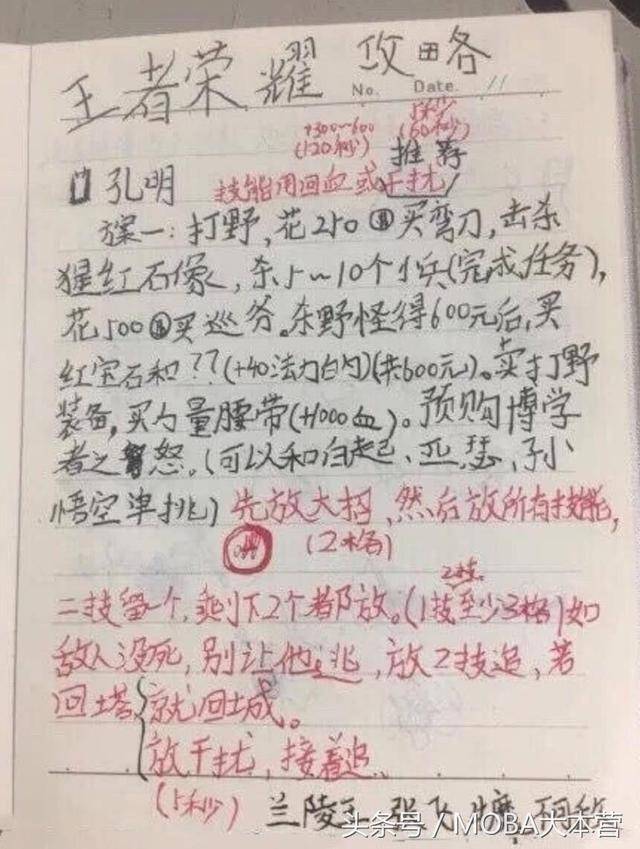 王者荣耀 攻略
No. Date. / /
+300~600 5秒
(120秒) (60秒)
推荐
孔明 技能用回血或干扰
方案一:打野,花250 买弯刀,击杀
猩红石像,杀5~10个小兵(完成任务),
花500 买巡守。杀野怪得600元后,买
红宝石和??(+40法力白勺)(共600元)。卖打野
装备,买力量腰带(+1000血)。预购博学
者之怒。(可以和白起、亚瑟、孙
悟空单挑)先放大招,然后放所有技能,
(2格)
2技
二技留一个,剩下2个都放。(1技至少3格)如
敌人没死,别让他逃,放2技追,若
回塔 就回城。
放干扰,接着追。
(5秒) 兰陵王 张飞
头条号/MOBA大本营